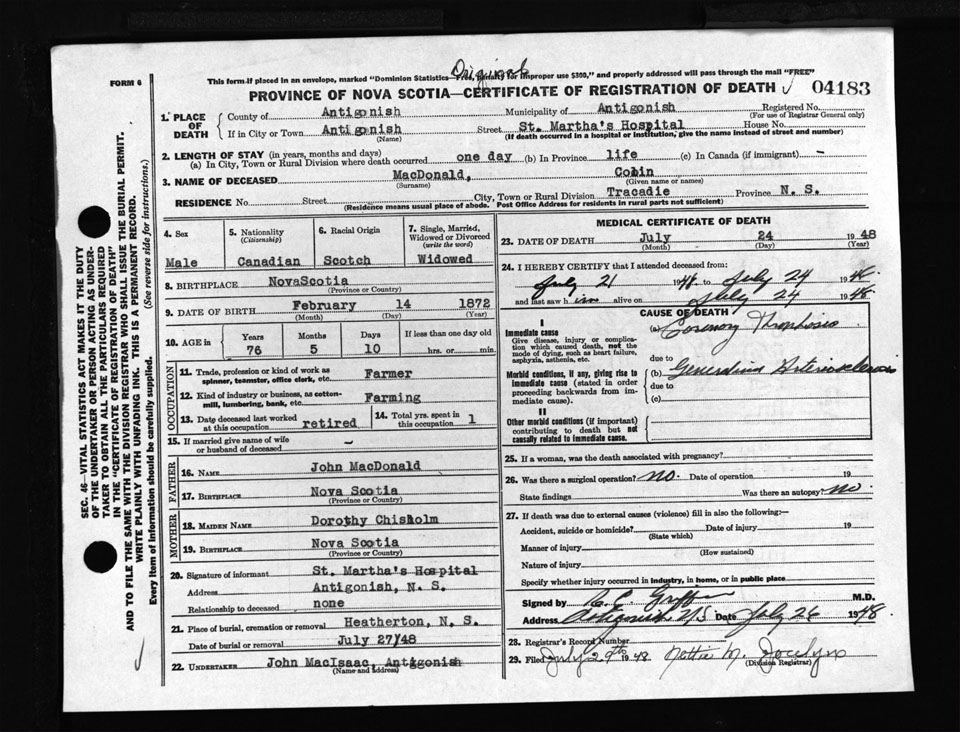 Original
This form if placed in an envelope, marked "Dominion Statistics—Free, penalty for improper use $300," and properly addressed will pass through the mail "FREE"
FORM 6
PROVINCE OF NOVA SCOTIA—CERTIFICATE OF REGISTRATION OF DEATH 04183
1. PLACE OF DEATH
County of Antigonish Municipality of Antigonish Registered No.
(For use of Registrar General only)
If in City or Town Antigonish Street St. Martha's Hospital House No.
(Name) (If death occurred in a hospital or institution, give the name instead of street and number)
2. LENGTH OF STAY (in years, months and days)
(a) In City, Town or Rural Division where death occurred one day (b) In Province life (c) In Canada (if immigrant) —
3. NAME OF DECEASED MacDonald, Colin
(Surname) (Given name or names)
RESIDENCE No. Street City, Town or Rural Division Tracadie Province N. S.
(Residence means usual place of abode. Post Office Address for residents in rural parts not sufficient)
4. Sex Male
5. Nationality (Citizenship) Canadian
6. Racial Origin Scotch
7. Single, Married, Widowed or Divorced (write the word) Widowed
8. BIRTHPLACE NovaScotia
(Province or Country)
9. DATE OF BIRTH February 14 1872
(Month) (Day) (Year)
10. AGE in Years Months Days If less than one day old
76 5 10 hrs. or min.
OCCUPATION
11. Trade, profession or kind of work as spinner, teamster, office clerk, etc. Farmer
12. Kind of industry or business, as cotton-mill, lumbering, bank, etc. Farming
13. Date deceased last worked at this occupation retired
14. Total yrs. spent in this occupation 1
15. If married give name of wife or husband of deceased —
FATHER
16. NAME John MacDonald
17. BIRTHPLACE Nova Scotia
(Province or Country)
MOTHER
18. MAIDEN NAME Dorothy Chisholm
19. BIRTHPLACE Nova Scotia
(Province or Country)
20. Signature of informant St. Martha's Hospital
Address Antigonish, N. S.
Relationship to deceased none
21. Place of burial, cremation or removal Heatherton, N. S.
Date of burial or removal July 27/48
22. UNDERTAKER John MacIsaac, Antigonish
(Name and Address)
MEDICAL CERTIFICATE OF DEATH
23. DATE OF DEATH July 24 1948
(Month) (Day) (Year)
24. I HEREBY CERTIFY that I attended deceased from:
July 21 1948 to July 24 1948
and last saw him alive on July 24 1948
CAUSE OF DEATH
I
Immediate cause
Give disease, injury or complication which caused death, not the mode of dying, such as heart failure, asphyxia, asthenia, etc.
(a) Coronary
due to
Morbid conditions, if any, giving rise to immediate cause (stated in order proceeding backwards from immediate cause).
(b) Arteriosclerosis
due to
(c)
II
Other morbid conditions (if important) contributing to death but not causally related to immediate cause.
25. If a woman, was the death associated with pregnancy?
26. Was there a surgical operation? no. Date of operation 19
State findings Was there an autopsy? no
27. If death was due to external causes (violence) fill in also the following:—
Accident, suicide or homicide? Date of injury 19
(State which)
Manner of injury
(How sustained)
Nature of injury
Specify whether injury occurred in industry, in home, or in public place
Signed by Griffin M.D.
Address Antigonish N S Date July 26 1948
28. Registrar's Record Number
29. Filed July 29th 1948 Nettie M. Jocelyn
(Division Registrar)
SEC. 46—VITAL STATISTICS ACT MAKES IT THE DUTY
OF THE UNDERTAKER OR PERSON ACTING AS UNDER-
TAKER TO OBTAIN ALL THE PARTICULARS REQUIRED
IN THE "CERTIFICATE OF REGISTRATION OF DEATH"
AND TO FILE THE SAME WITH THE DIVISION REGISTRAR WHO SHALL ISSUE THE BURIAL PERMIT.
WRITE PLAINLY WITH UNFADING INK. THIS IS A PERMANENT RECORD.
Every item of Information should be carefully supplied. (See reverse side for instructions.)